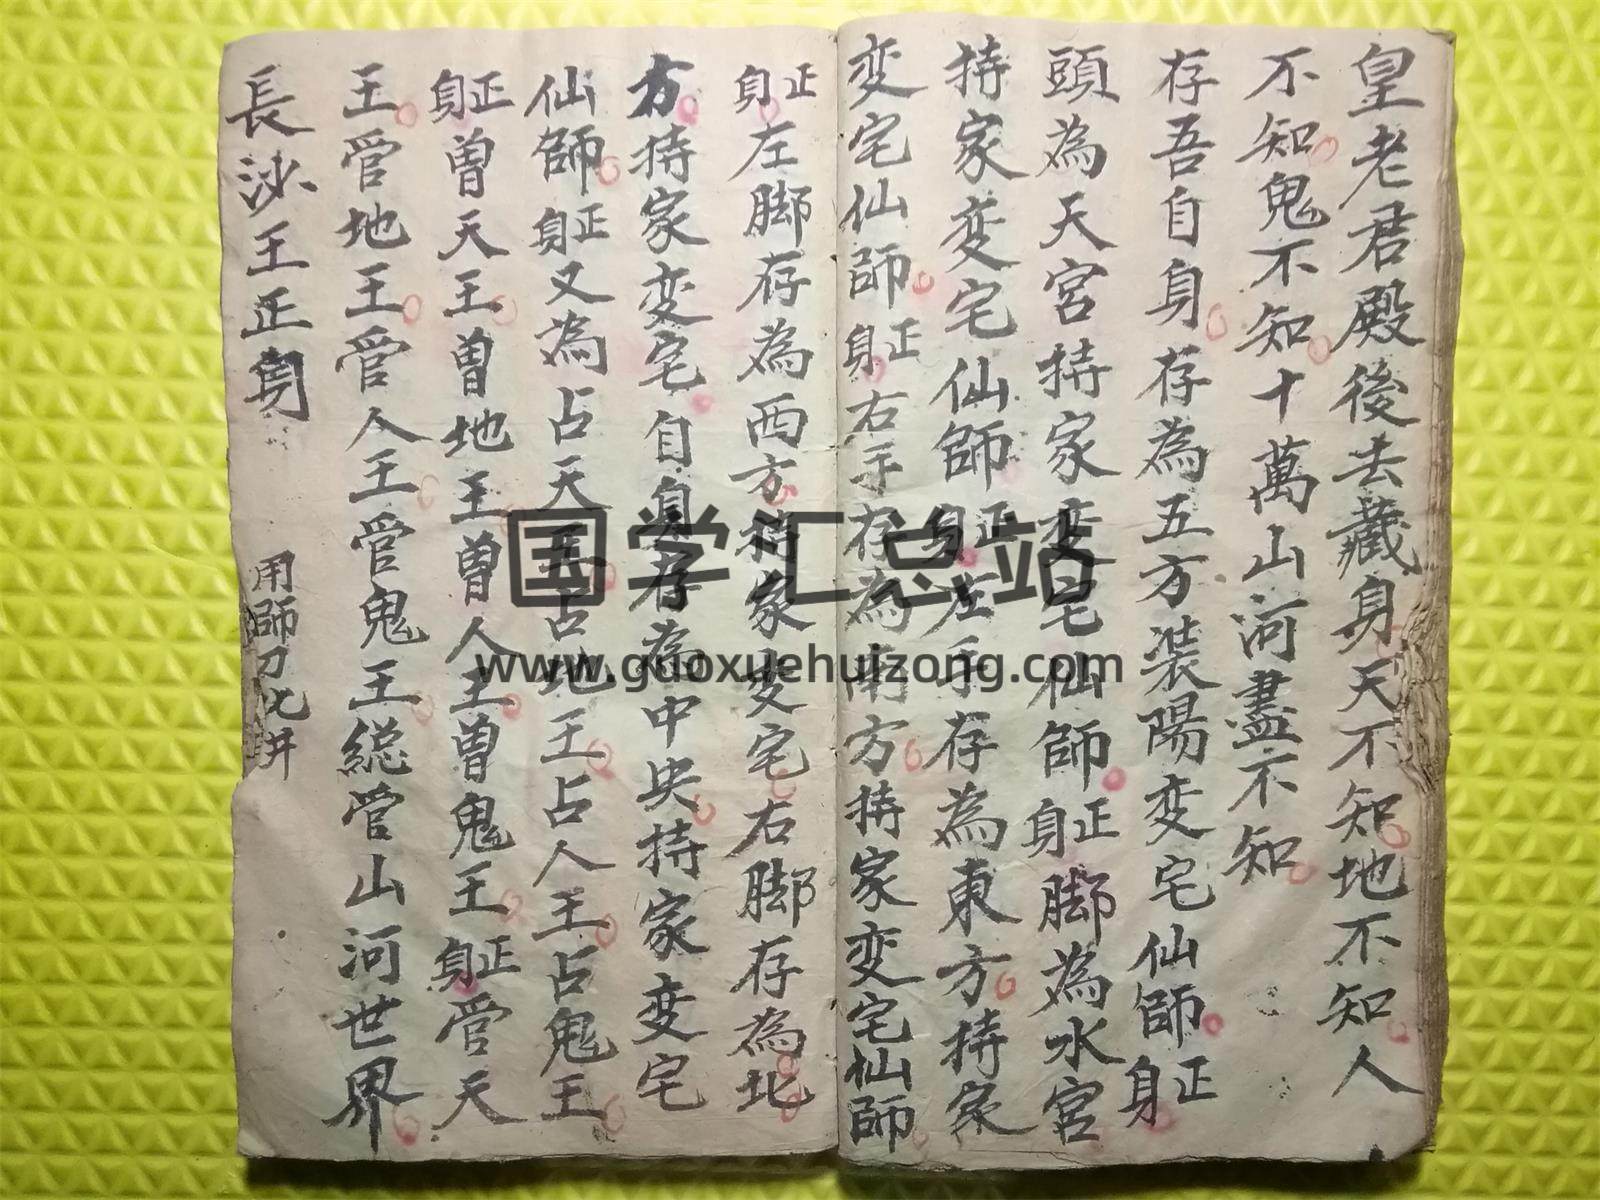 皇老君殿後去藏身天不知地不知人
不知鬼不知十萬山河盡不知
存吾自身存為五方裝陽変宅仙師正身
頭為天宮持家変宅仙師正身脚為水宮
持家変宅仙師正身左手存為東方持家
変宅仙師正身右手存為南方持家変宅仙師
正身左脚存為西方持家変宅右脚存為北
方持家変宅自身存為中央持家変宅
仙師正身又為占天王占地王占人王占鬼王
正身曽天王曽地王曽人王曽鬼王正身管天
王管地王管人王管鬼王総管山河世界
長沙王正身
用師刀化井
国学汇总站
www.guoxuehuizong.com